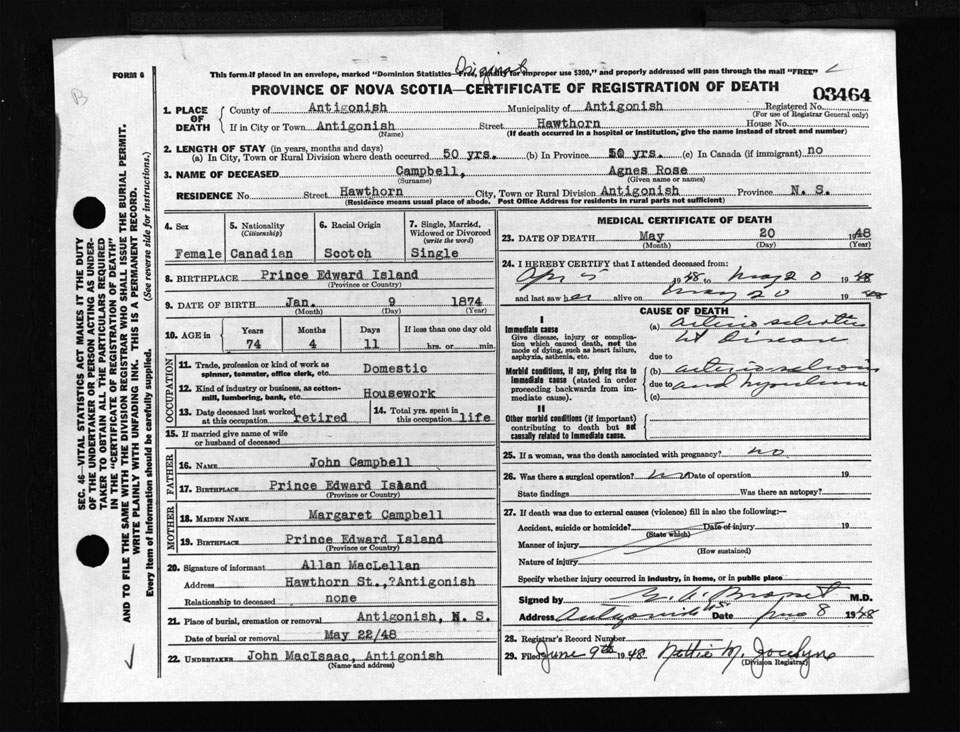 Original
FORM 6
This form if placed in an envelope, marked "Dominion Statistics—Free, penalty for improper use $300," and properly addressed will pass through the mail "FREE"
PROVINCE OF NOVA SCOTIA—CERTIFICATE OF REGISTRATION OF DEATH
03464
B
1. PLACE OF DEATH
County of Antigonish Municipality of Antigonish Registered No.
(For use of Registrar General only)
If in City or Town Antigonish Street Hawthorn House No.
(Name) (If death occurred in a hospital or institution, give the name instead of street and number)
2. LENGTH OF STAY (in years, months and days)
(a) In City, Town or Rural Division where death occurred 50 yrs. (b) In Province 50 yrs. (c) In Canada (if immigrant) no
3. NAME OF DECEASED Campbell, Agnes Rose
(Surname) (Given name or names)
RESIDENCE No Street Hawthorn City, Town or Rural Division Antigonish Province N. S.
(Residence means usual place of abode. Post Office Address for residents in rural parts not sufficient)
4. Sex
Female
5. Nationality
(Citizenship)
Canadian
6. Racial Origin
Scotch
7. Single, Married, Widowed or Divorced
(write the word)
Single
8. BIRTHPLACE Prince Edward Island
(Province or Country)
9. DATE OF BIRTH Jan. 9 1874
(Month) (Day) (Year)
10. AGE in Years Months Days If less than one day old
74 4 11 hrs. or min.
OCCUPATION
11. Trade, profession or kind of work as spinner, teamster, office clerk, etc. Domestic
12. Kind of industry or business, as cotton-mill, lumbering, bank, etc. Housework
13. Date deceased last worked at this occupation retired
14. Total yrs. spent in this occupation life
15. If married give name of wife or husband of deceased
FATHER
16. NAME John Campbell
17. BIRTHPLACE Prince Edward Island
(Province or Country)
MOTHER
18. MAIDEN NAME Margaret Campbell
19. BIRTHPLACE Prince Edward Island
(Province or Country)
20. Signature of informant Allan MacLellan
Address Hawthorn St., ?Antigonish
Relationship to deceased none
21. Place of burial, cremation or removal Antigonish, N. S.
Date of burial or removal May 22/48
22. UNDERTAKER John MacIsaac, Antigonish
(Name and address)
MEDICAL CERTIFICATE OF DEATH
23. DATE OF DEATH May 20 1948
(Month) (Day) (Year)
24. I HEREBY CERTIFY that I attended deceased from:
Apr 5 1948 to May 20 1948
and last saw her alive on May 20 1948
CAUSE OF DEATH
I
Immediate cause
Give disease, injury or complication which caused death, not the mode of dying, such as heart failure, asphyxia, asthenia, etc.
(a)
Ht Disease
due to
Morbid conditions, if any, giving rise to immediate cause (stated in order proceeding backwards from immediate cause)
(b)
due to and
(c)
II
Other morbid conditions (if important) contributing to death but not causally related to immediate cause.
25. If a woman, was the death associated with pregnancy? no
26. Was there a surgical operation? no Date of operation 19
State findings Was there an autopsy?
27. If death was due to external causes (violence) fill in also the following:—
Accident, suicide or homicide? Date of injury 19
(State which)
Manner of injury
(How sustained)
Nature of injury
Specify whether injury occurred in industry, in home, or in public place
Signed by M.D.
Address Antigonish NS Date 8 1948
28. Registrar's Record Number
29. Filed June 9th 1948 Nettie M. Jocelyne
(Division Registrar)
SEC. 46—VITAL STATISTICS ACT MAKES IT THE DUTY
OF THE UNDERTAKER OR PERSON ACTING AS UNDER-
TAKER TO OBTAIN ALL THE PARTICULARS REQUIRED
IN THE "CERTIFICATE OF REGISTRATION OF DEATH"
AND TO FILE THE SAME WITH THE DIVISION REGISTRAR WHO SHALL ISSUE THE BURIAL PERMIT.
WRITE PLAINLY WITH UNFADING INK. THIS IS A PERMANENT RECORD.
Every item of information should be carefully supplied. (See reverse side for instructions.)